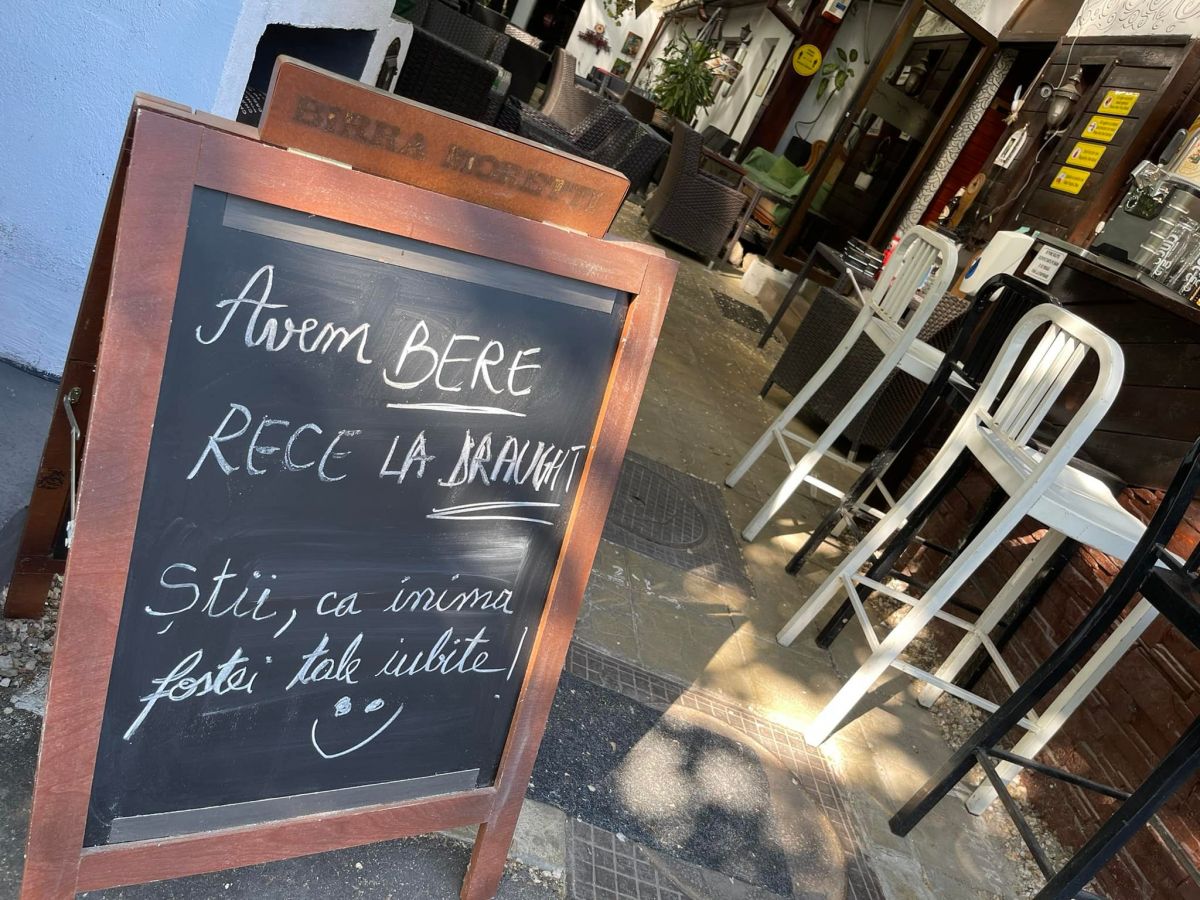 BIRRA MORETTI
Avem BERE
RECE LA DRAUGHT
Știi, ca inima
fostei tale iubite!